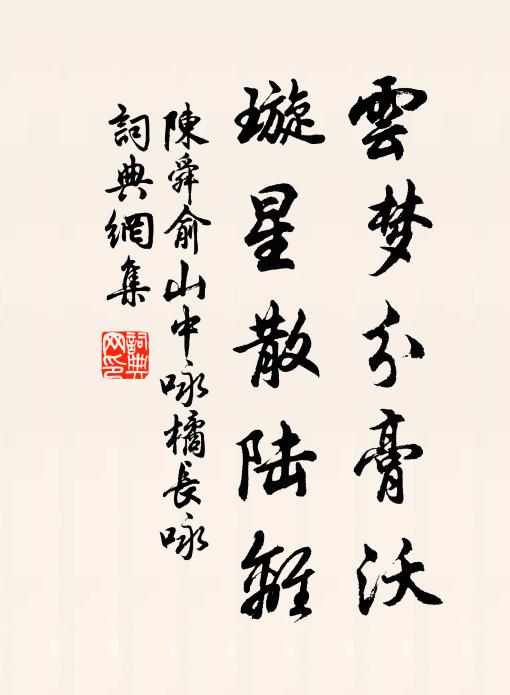 雲梦分膏沃
璇星散陆離
陳舜俞山中咏橘長咏
詞典網集
詞典網印